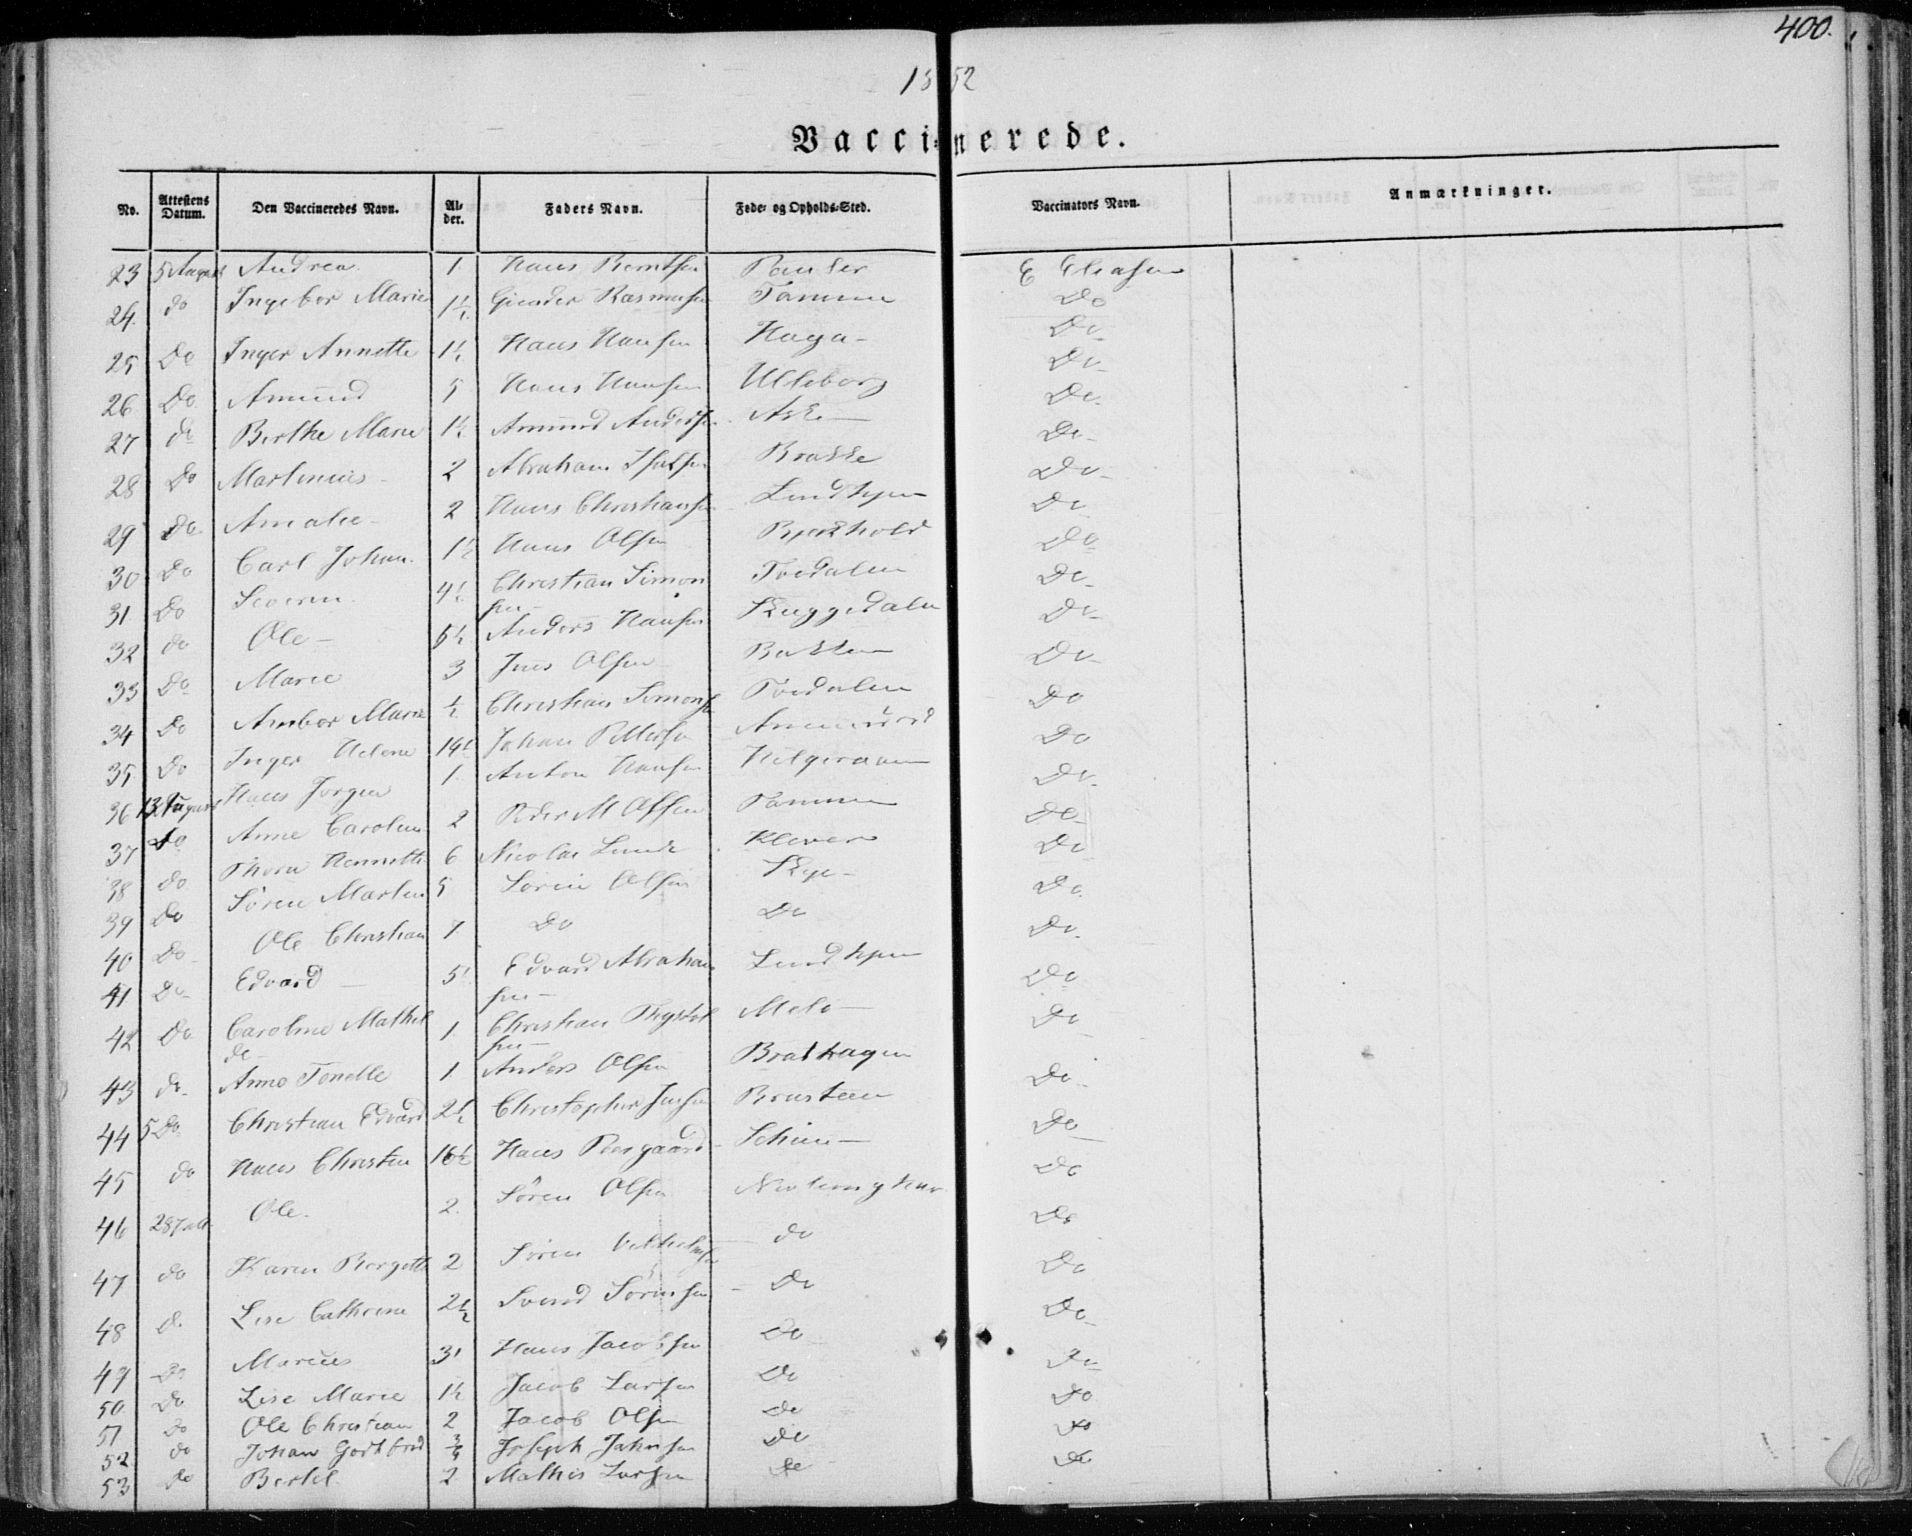 400.
1852
Vaccinerede.
No. Attestens Datum. Den Vaccineredes Navn. Al- der. Faders Navn. Føde- og Opholds-Sted. Vaccinators Navn. Anmærkninger.
23 5 August Andrea 1 Hans Berntsen E Eliasen
24. do Ingebor Marie 1½ Gunder Rasmusen Tammen Do
25 Do Inger Annette 1½ Hans Hansen Haga- Do-
26 Do Amund 5 Hans Hansen Ulleborg Do-
27 do Berthe Marie 1½ Amund Andersen Ask- Do-
28 Do Martinius- 2 Abraham Brække Do-
29 Do Amalie- 2 Hans Christiansen Lindhjem Do-
30 Do Carl Johan. 1½ Hans Olsen Bjerkhold Do
31 Do Severin 4½ Christian Simon sen- Tvedalen Do-
32 do Ole- 5½ Anders Hansen Skuggedalen Do-
33 Do Marie 3 Jens Olsen Bakken Do-
34 Do Anbor Marie ½ Christian Simonsen Tvedalen Do
35 Do Inger Helene 14½ Johan Pettersen Do
36 13 August Hans Jørgen 1. Anton Hansen Helgeraaen Do-
37 Do Anne Carolin 2 Peder M Olsen Tammen Do-
38 Do Thora Hennette 6 Nicolai Lunde Klever Do
39 Do Søren Martin 5 Søren Olsen Do
40 Do Ole Christian 7 Do Do Do
41 Do- Edvard- 5 Edvard Abraham sen- Lindhjem Do
42 Do Caroline Mathil de- 1. Christian sen- Melø- Do
43 do- Anne Tonette 1 Anders Olsen Brathagen Do
44 5 Do Christian Edvard 2½ Christopher Jensen Do
45 do Hans Christen 16½ Hans Do
46 28 Ole. 2. Søren Olsen Do
47 do Karen Bergette 2 Søren do Do
48 do Lise Cathrine 2½ Svend Sørensen- Do Do
49 Do Marius 3 Hans Jacobsen Do Do
50 Do Lise Marie 1½ Jacob Larsen Do Do
51 Do Ole Christian 2 Jacob Olsen do Do
52 do Johan Gottfred ¾ Joseph Johnsen do Do
53 do Bertel 2 Mathis Larsen do